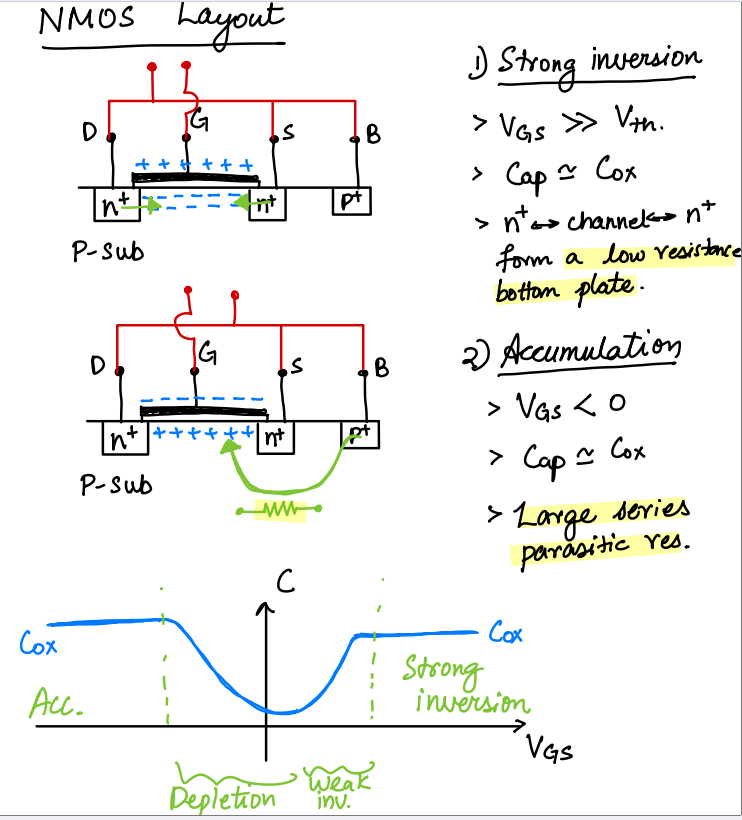 NMOS Layout
D G S B
+ + + + + +
n+ n+ P+
P-sub
D G S B
n+ + + + + + + n+ P+
P-sub
1) Strong inversion
> VGS >> Vth.
> Cap ≃ Cox
> n+ ↔ channel ↔ n+
form a low resistance
bottom plate.
2) Accumulation
> VGS < 0
> Cap ≃ Cox
> Large series
parasitic res.
C
Cox Cox
Acc. Strong
inversion
VGS
Depletion Weak
inv.